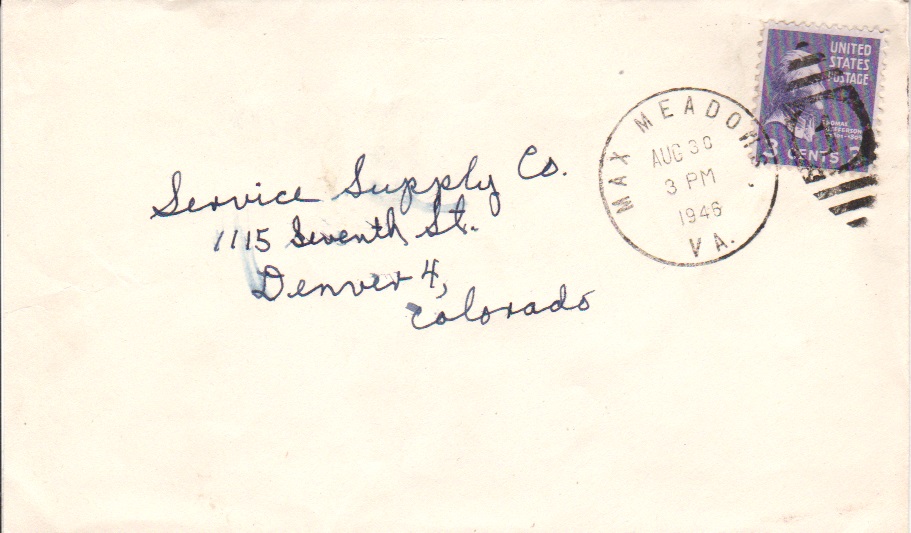 UNITED
STATES
POSTAGE
THOMAS
JEFFERSON
3 CENTS 3
MAX MEADOWS
AUG 30
3 PM
1946
VA.
Service Supply Co.
1115 Seventh St.
Denver 4,
Colorado